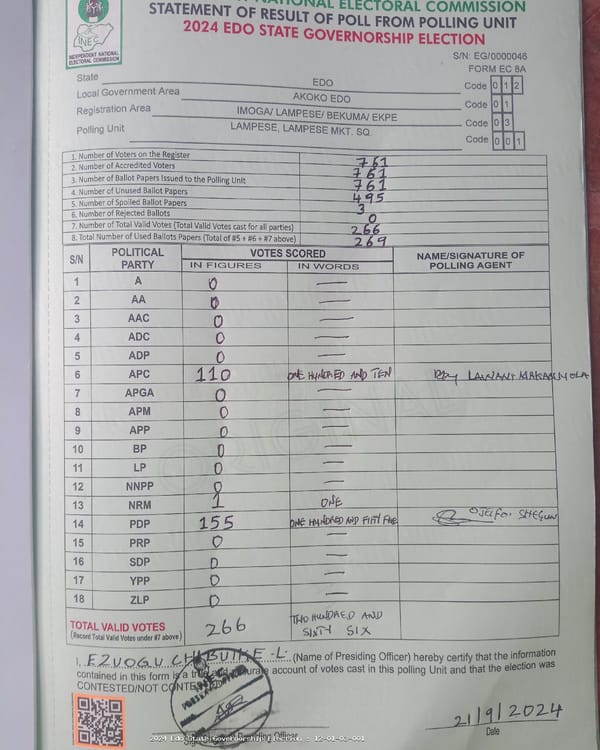 NATIONAL ELECTORAL COMMISSION
STATEMENT OF RESULT OF POLL FROM POLLING UNIT
2024 EDO STATE GOVERNORSHIP ELECTION
INEC
INDEPENDENT NATIONAL
ELECTORAL COMMISSION
S/N: EG/0000046
FORM EC 8A
State EDO Code 0 1 2
Local Government Area AKOKO EDO Code 0 1
Registration Area IMOGA/ LAMPESE/ BEKUMA/ EKPE Code 0 3
Polling Unit LAMPESE, LAMPESE MKT. SQ. Code 0 0 1
1. Number of Voters on the Register 761
2. Number of Accredited Voters 761
3. Number of Ballot Papers Issued to the Polling Unit 761
4. Number of Unused Ballot Papers 495
5. Number of Spoiled Ballot Papers 3
6. Number of Rejected Ballots 0
7. Number of Total Valid Votes (Total Valid Votes cast for all parties) 266
8. Total Number of Used Ballots Papers (Total of #5 + #6 + #7 above) 269
S/N POLITICAL PARTY VOTES SCORED NAME/SIGNATURE OF POLLING AGENT
IN FIGURES IN WORDS
1 A 0 —
2 AA 0 —
3 AAC 0 —
4 ADC 0 —
5 ADP 0 —
6 APC 110 ONE HUNDRED AND TEN LAWANI
7 APGA 0 —
8 APM 0 —
9 APP 0 —
10 BP 0 —
11 LP 0 —
12 NNPP 0 —
13 NRM 1 ONE
14 PDP 155 ONE HUNDRED AND FIFTY FIVE OJEIFO. SHEGUN
15 PRP 0 —
16 SDP 0 —
17 YPP 0 —
18 ZLP 0 —
TOTAL VALID VOTES 266 TWO HUNDRED AND
(Record Total Valid Votes under #7 above) SIXTY SIX
ORIGINAL
I, EZUOGU CHIBUIKE .L. (Name of Presiding Officer) hereby certify that the information
contained in this form is a true and accurate account of votes cast in this polling Unit and that the election was
CONTESTED/NOT CONTESTED
INEC
21/9/2024
Date
2024 Edo State Governorship Election - 12-01-03-001
Presiding Officer